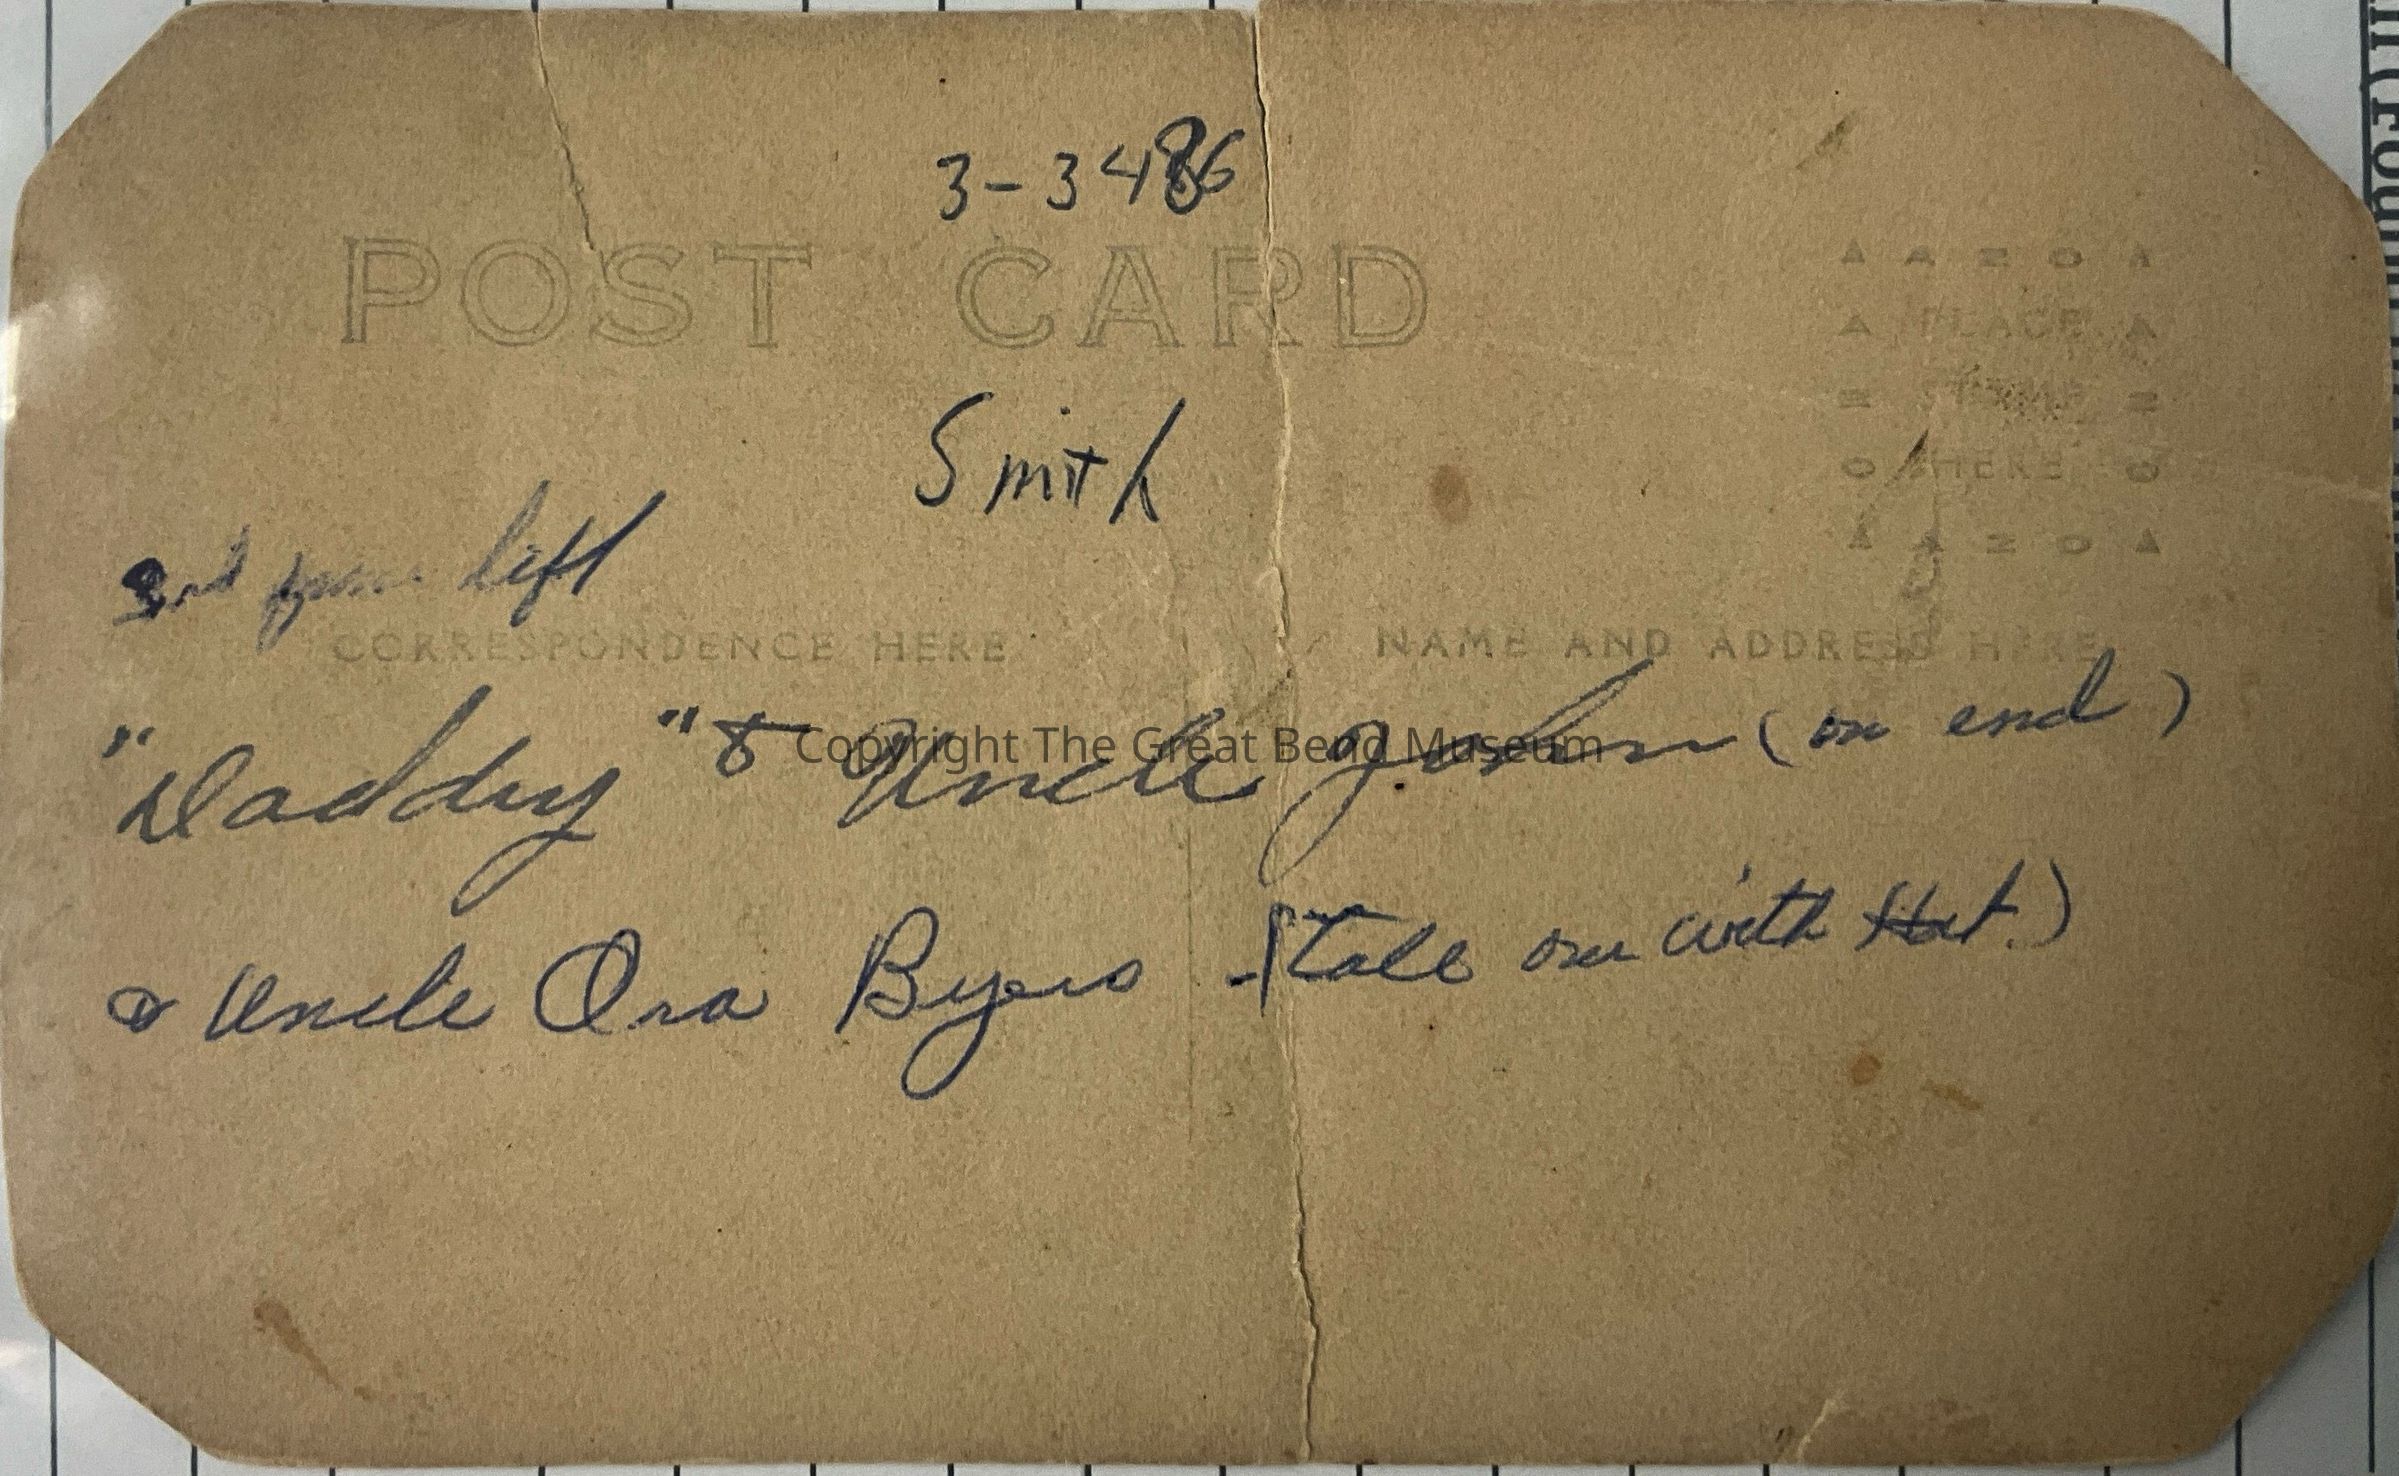 3-3486
POST CARD
▲ A Z O ▲
PLACE
STAMP
HERE
▲ A Z O ▲
Smith
from left
CORRESPONDENCE HERE
NAME AND ADDRESS HERE
"Daddy" & Uncle John (on end)
Copyright The Great Bend Museum
& Uncle Ora Byers - (tall one with Hat.)